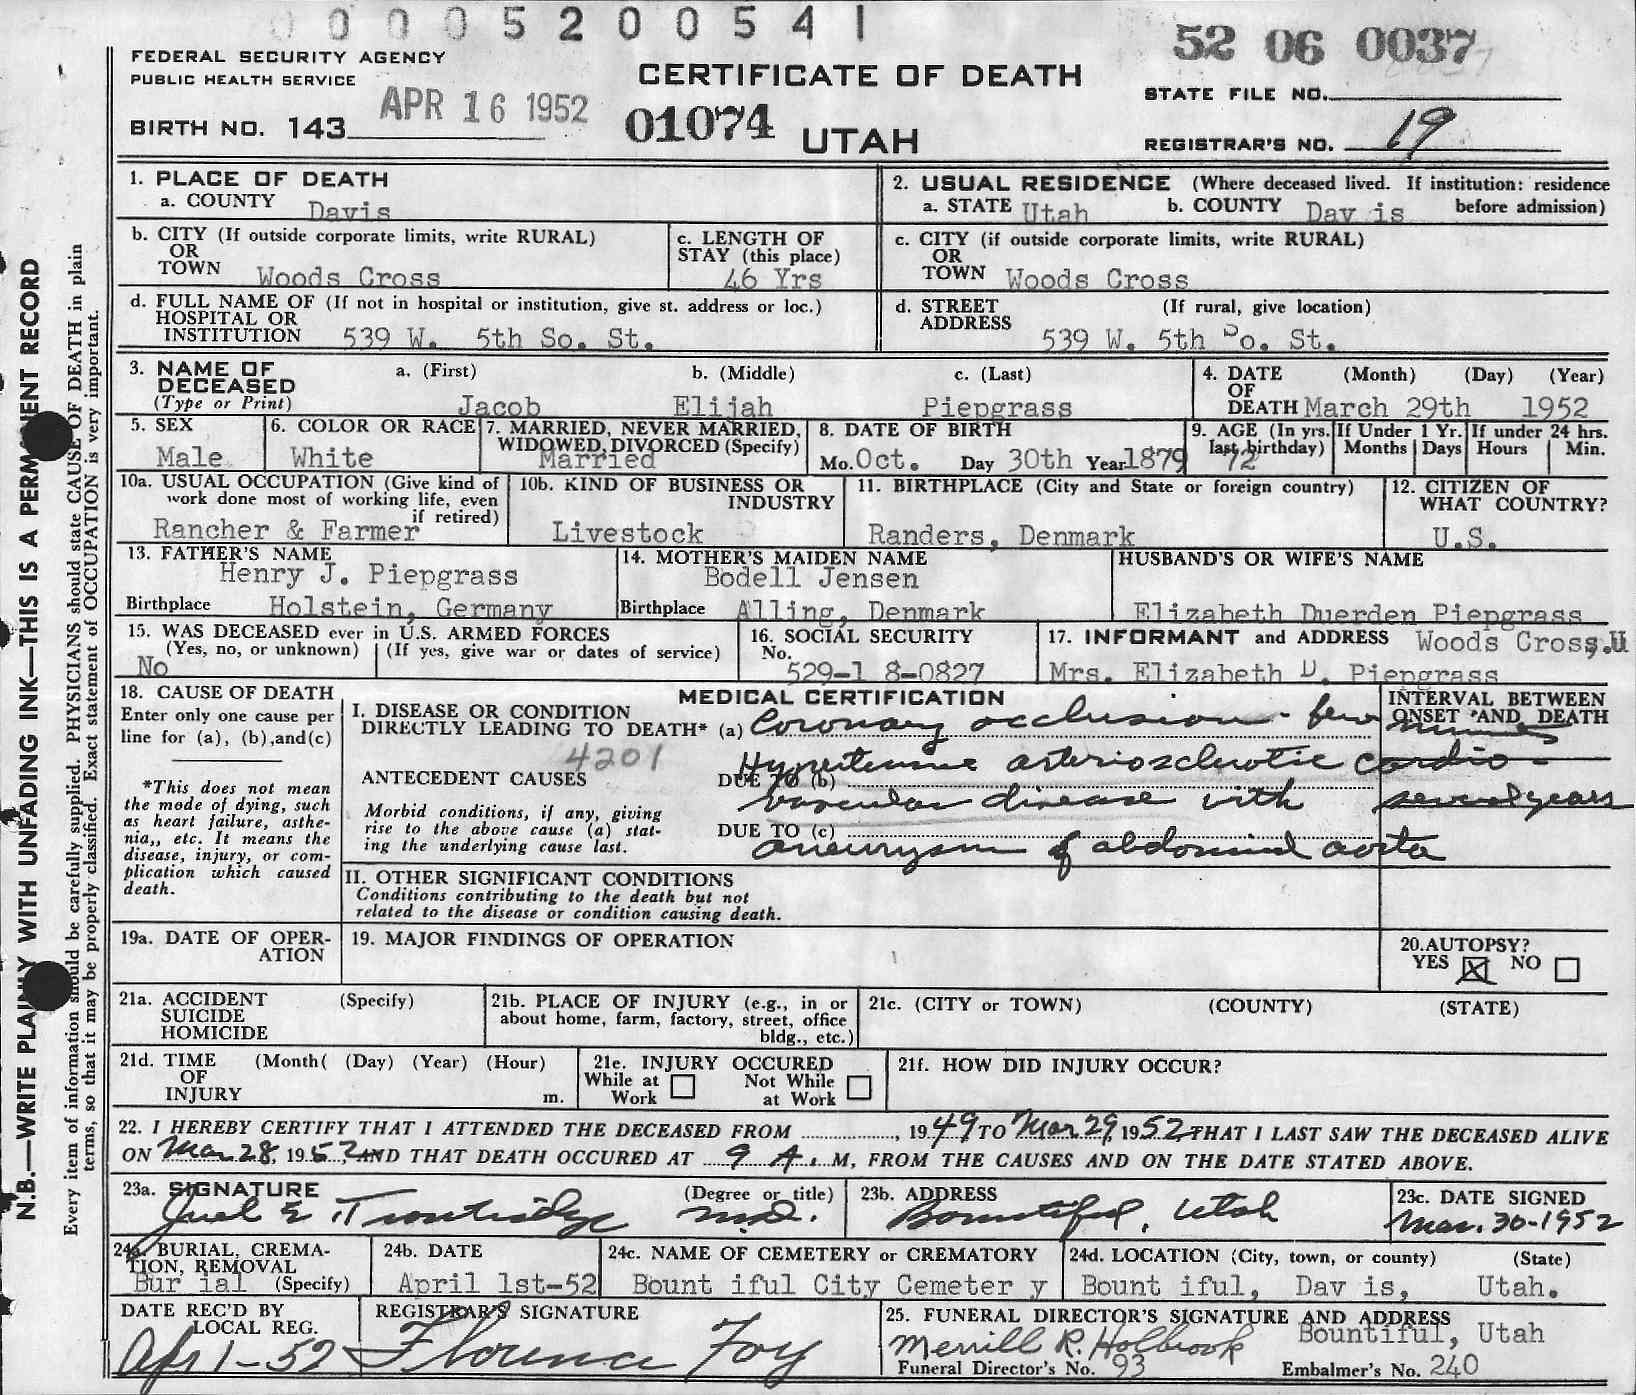 0 0 0 5 2 0 0 5 4 1
52 06 0037
FEDERAL SECURITY AGENCY
PUBLIC HEALTH SERVICE
APR 16 1952
BIRTH NO. 143
CERTIFICATE OF DEATH
01074 UTAH
STATE FILE NO.
REGISTRAR'S NO. 19
N.B.—WRITE PLAINLY WITH UNFADING INK—THIS IS A PERMANENT RECORD
Every item of information should be carefully supplied. PHYSICIANS should state CAUSE OF DEATH in plain
terms, so that it may be properly classified. Exact statement of OCCUPATION is very important.
1. PLACE OF DEATH
a. COUNTY Davis
2. USUAL RESIDENCE (Where deceased lived. If institution: residence
a. STATE Utah b. COUNTY Dav is before admission)
b. CITY (If outside corporate limits, write RURAL)
OR
TOWN Woods Cross
c. LENGTH OF
STAY (this place)
46 Yrs
c. CITY (if outside corporate limits, write RURAL)
OR
TOWN Woods Cross
d. FULL NAME OF (If not in hospital or institution, give st. address or loc.)
HOSPITAL OR
INSTITUTION 539 W. 5th So. St.
d. STREET (If rural, give location)
ADDRESS
539 W. 5th So. St.
3. NAME OF a. (First) b. (Middle) c. (Last)
DECEASED
(Type or Print) Jacob Elijah Piepgrass
4. DATE (Month) (Day) (Year)
OF
DEATH March 29th 1952
5. SEX
Male
6. COLOR OR RACE
White
7. MARRIED, NEVER MARRIED,
WIDOWED, DIVORCED (Specify)
Married
8. DATE OF BIRTH
Mo. Oct. Day 30th Year 1879
9. AGE (In yrs.
last birthday)
72
If Under 1 Yr.
Months Days
If under 24 hrs.
Hours Min.
10a. USUAL OCCUPATION (Give kind of
work done most of working life, even
if retired)
Rancher & Farmer
10b. KIND OF BUSINESS OR
INDUSTRY
Livestock
11. BIRTHPLACE (City and State or foreign country)
Randers, Denmark
12. CITIZEN OF
WHAT COUNTRY?
U.S.
13. FATHER'S NAME
Henry J. Piepgrass
Birthplace Holstein, Germany
14. MOTHER'S MAIDEN NAME
Bodell Jensen
Birthplace Alling, Denmark
HUSBAND'S OR WIFE'S NAME
Elizabeth Duerden Piepgrass
15. WAS DECEASED ever in U.S. ARMED FORCES
(Yes, no, or unknown) (If yes, give war or dates of service)
No
16. SOCIAL SECURITY
No.
529-1 8-0827
17. INFORMANT and ADDRESS Woods Cross,U
Mrs. Elizabeth D. Piepgrass
18. CAUSE OF DEATH
Enter only one cause per
line for (a), (b),and(c)
*This does not mean
the mode of dying, such
as heart failure, asthe-
nia,, etc. It means the
disease, injury, or com-
plication which caused
death.
MEDICAL CERTIFICATION
I. DISEASE OR CONDITION
DIRECTLY LEADING TO DEATH* (a) Coronary occlusion - few minutes
INTERVAL BETWEEN
ONSET AND DEATH
4201
ANTECEDENT CAUSES
Morbid conditions, if any, giving
rise to the above cause (a) stat-
ing the underlying cause last.
DUE TO (b) Hypertensive arteriosclerotic cardio-
vascular disease with several years
DUE TO (c)
aneurysm of abdominal aorta
II. OTHER SIGNIFICANT CONDITIONS
Conditions contributing to the death but not
related to the disease or condition causing death.
19a. DATE OF OPER-
ATION
19. MAJOR FINDINGS OF OPERATION
20.AUTOPSY?
YES X NO
21a. ACCIDENT (Specify)
SUICIDE
HOMICIDE
21b. PLACE OF INJURY (e.g., in or
about home, farm, factory, street, office
bldg., etc.)
21c. (CITY or TOWN) (COUNTY) (STATE)
21d. TIME (Month( (Day) (Year) (Hour)
OF
INJURY m.
21e. INJURY OCCURED
While at Not While
Work at Work
21f. HOW DID INJURY OCCUR?
22. I HEREBY CERTIFY THAT I ATTENDED THE DECEASED FROM , 1949 TO Mar 29, 1952, THAT I LAST SAW THE DECEASED ALIVE
ON Mar 28, 1952, AND THAT DEATH OCCURED AT 9 A. M, FROM THE CAUSES AND ON THE DATE STATED ABOVE.
23a. SIGNATURE (Degree or title)
M.D.
23b. ADDRESS
Bountiful, Utah
23c. DATE SIGNED
Mar. 30-1952
24a. BURIAL, CREMA-
TION, REMOVAL
Bur ial (Specify)
24b. DATE
April 1st-52
24c. NAME OF CEMETERY or CREMATORY
Bount iful City Cemeter y
24d. LOCATION (City, town, or county) (State)
Bount iful, Dav is, Utah.
DATE REC'D BY
LOCAL REG.
Apr 1-52
REGISTRAR'S SIGNATURE
Florence Foy
25. FUNERAL DIRECTOR'S SIGNATURE AND ADDRESS
Merrill R. Holbrook Bountiful, Utah
Funeral Director's No. 93 Embalmer's No. 240